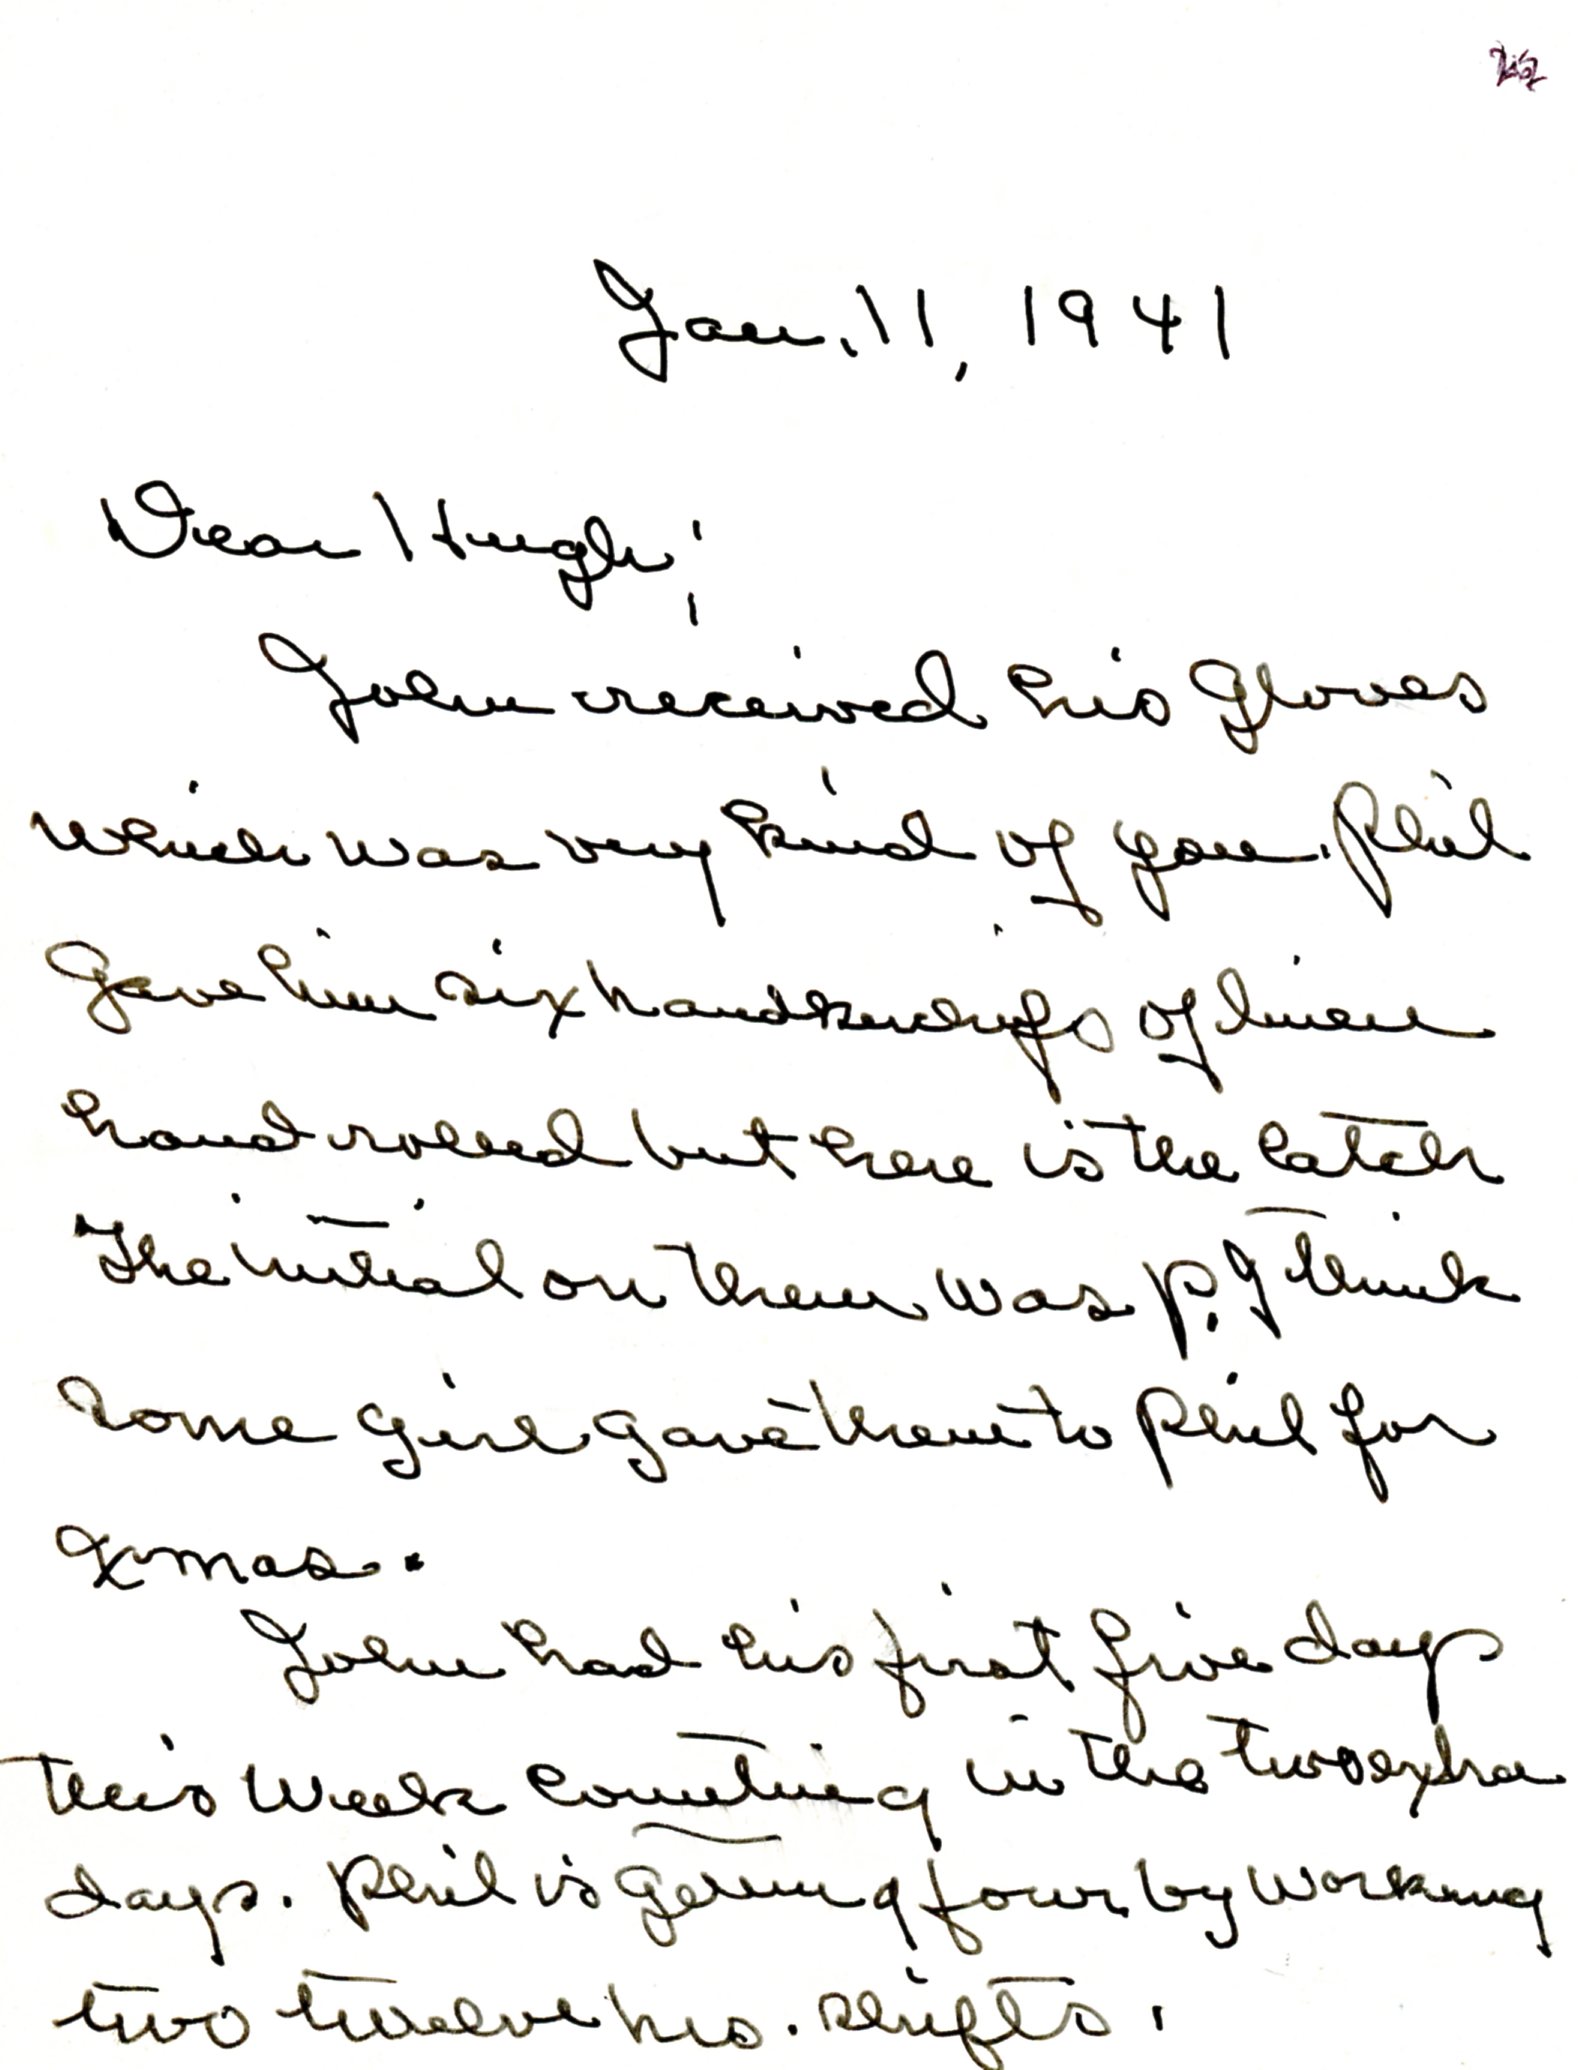 Jan. 11, 1941
Dear Hugh;
John received his gloves
which was very kind of you. Phil
gave him six handkerchifs of linen
hand rolled but here is the catch
The initial on them was P. I think
some girl gave them to Phil for
Xmas.
John had his first five days
this week counting in the two extra
days. Phil is getting four by working
two twelve hrs. shifts.